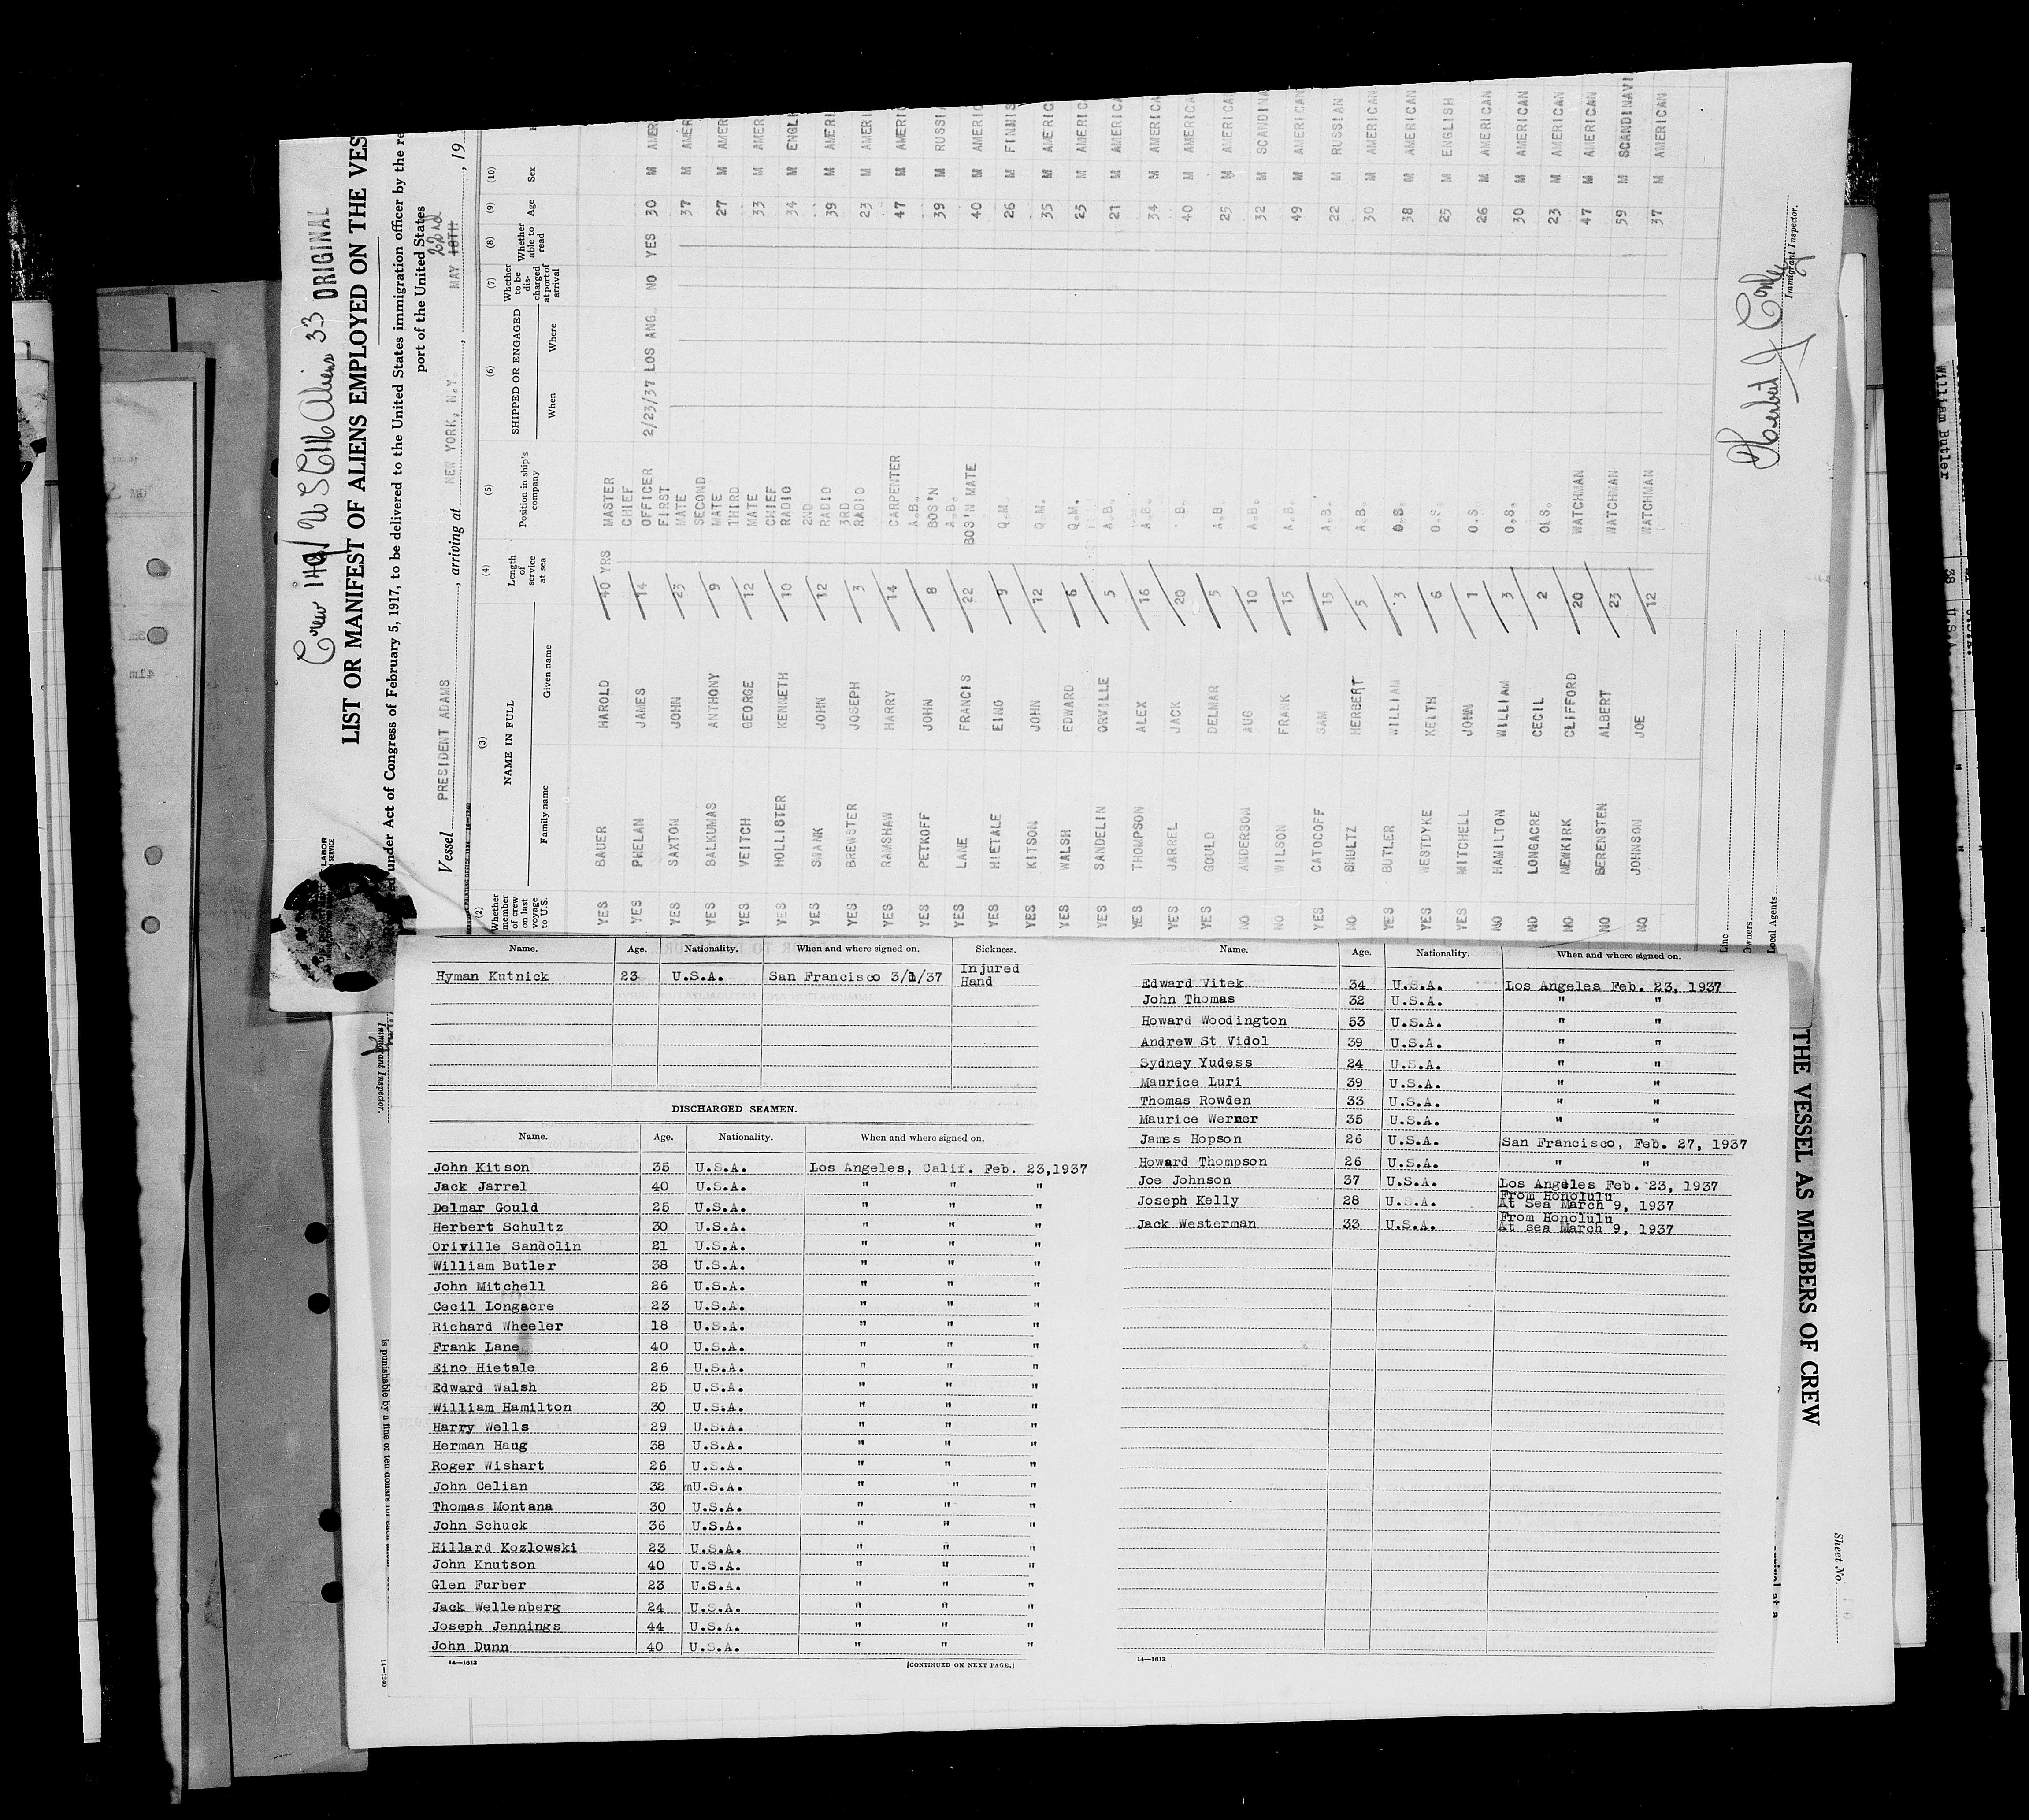 Crew 149/ U S C 116 Aliens 33 ORIGINAL
LIST OR MANIFEST OF ALIENS EMPLOYED ON THE VES
under Act of Congress of February 5, 1917, to be delivered to the United States immigration officer by the re
port of the United States
Vessel PRESIDENT ADAMS, arriving at NEW YORK, N.Y., MAY 18TH 22nd, 19
LABOR
N SERVICE
(2) (3) (4) (5) (6) (7) (8) (9) (10)
Whether member of crew on last voyage to U.S. NAME IN FULL Family name Given name Length of service at sea Position in ship's company SHIPPED OR ENGAGED When Where Whether to be discharged at port of arrival Whether able to read Age Sex
YES BAUER HAROLD 40 YRS MASTER
YES PHELAN JAMES 14 CHIEF OFFICER 2/23/37 LOS ANG. NO YES 30 M AMER
YES SAXTON JOHN 23 FIRST MATE 37 M AMER
YES BALKUMAS ANTHONY 9 SECOND MATE 27 M AMER
YES VEITCH GEORGE 12 THIRD MATE 33 M AMER
YES HOLLISTER KENNETH 10 CHIEF RADIO 34 M ENGLI
YES SWANK JOHN 12 2ND RADIO 39 M AMERI
YES BREWSTER JOSEPH 3 3RD RADIO 23 M AMERI
YES RAMSHAW HARRY 14 CARPENTER 47 M AMERI
YES PETKOFF JOHN 8 A.B. BOS'N 39 M RUSSI
YES LANE FRANCIS 22 A.B. BOS'N MATE 40 M AMERIC
YES HIETALE EINO 9 Q.M. 26 M FINNIS
YES KITSON JOHN 12 Q.M. 35 M AMERIC
YES WALSH EDWARD 6 Q.M. 25 M AMERIC
YES SANDELIN ORVILLE 5 A.B. 21 M AMERICA
YES THOMPSON ALEX 16 A.B. 34 M AMERICA
YES JARREL JACK 20 .B. 40 M AMERICA
YES GOULD DELMAR 5 A.B. 25 M AMERICAN
NO ANDERSON AUG 10 A.B. 32 M SCANDINA
NO WILSON FRANK 15 A.B. 49 M AMERICAN
YES CATOCOFF SAM 15 A.B. 22 M RUSSIAN
NO SHULTZ HERBERT 5 A.B. 30 M AMERICAN
YES BUTLER WILLIAM 3 O.S. 38 M AMERICAN
YES WESTDYKE KEITH 6 O.S. 25 M ENGLISH
YES MITCHELL JOHN 1 O.S. 26 M AMERICAN
NO HAMILTON WILLIAM 3 O.S. 30 M AMERICAN
NO LONGACRE CECIL 2 O.S. 23 M AMERICAN
NO NEWKIRK CLIFFORD 20 WATCHMAN 47 M AMERICAN
NO BERENSTEN ALBERT 23 WATCHMAN 59 M SCANDINAVI
NO JOHNSON JOE 12 WATCHMAN 37 M AMERICAN
Line
Owners
Local Agents
Immigrant Inspector.
Name. Age. Nationality. When and where signed on. Sickness.
Hyman Kutnick 23 U.S.A. San Francisco 3/1/37 Injured Hand
DISCHARGED SEAMEN.
Name. Age. Nationality. When and where signed on.
John Kitson 35 U.S.A. Los Angeles, Calif. Feb. 23,1937
Jack Jarrel 40 U.S.A. " " "
Delmar Gould 25 U.S.A. " " "
Herbert Schultz 30 U.S.A. " " "
Oriville Sandolin 21 U.S.A. " " "
William Butler 38 U.S.A. " " "
John Mitchell 26 U.S.A. " " "
Cecil Longacre 23 U.S.A. " " "
Richard Wheeler 18 U.S.A. " " "
Frank Lane 40 U.S.A. " " "
Eino Hietale 26 U.S.A. " " "
Edward Walsh 25 U.S.A. " " "
William Hamilton 30 U.S.A. " " "
Harry Wells 29 U.S.A. " " "
Herman Haug 38 U.S.A. " " "
Roger Wishart 26 U.S.A. " " "
John Celian 32 mU.S.A. " " "
Thomas Montana 30 U.S.A. " " "
John Schuck 36 U.S.A. " " "
Hillard Kozlowski 23 U.S.A. " " "
John Knutson 40 U.S.A. " " "
Glen Furber 23 U.S.A. " " "
Jack Wellenberg 24 U.S.A. " " "
Joseph Jennings 44 U.S.A. " " "
John Dunn 40 U.S.A. " " "
14—1612 [CONTINUED ON NEXT PAGE.]
Name. Age. Nationality. When and where signed on.
Edward Vitek 34 U.S.A. Los Angeles Feb. 23, 1937
John Thomas 32 U.S.A. " "
Howard Woodington 53 U.S.A. " "
Andrew St Vidol 39 U.S.A. " "
Sydney Yudess 24 U.S.A. " "
Maurice Luri 39 U.S.A. " "
Thomas Rowden 33 U.S.A. " "
Maurice Werner 35 U.S.A. " "
James Hopson 26 U.S.A. San Francisco, Feb. 27, 1937
Howard Thompson 26 U.S.A. " "
Joe Johnson 37 U.S.A. Los Angeles Feb. 23, 1937
Joseph Kelly 28 U.S.A. From Honolulu At Sea March 9, 1937
Jack Westerman 33 U.S.A. From Honolulu At sea March 9, 1937
14—1612
THE VESSEL AS MEMBERS OF CREW
Sheet No.
Immigrant Inspector.
14—1240
William Butler
38 U.S.A.